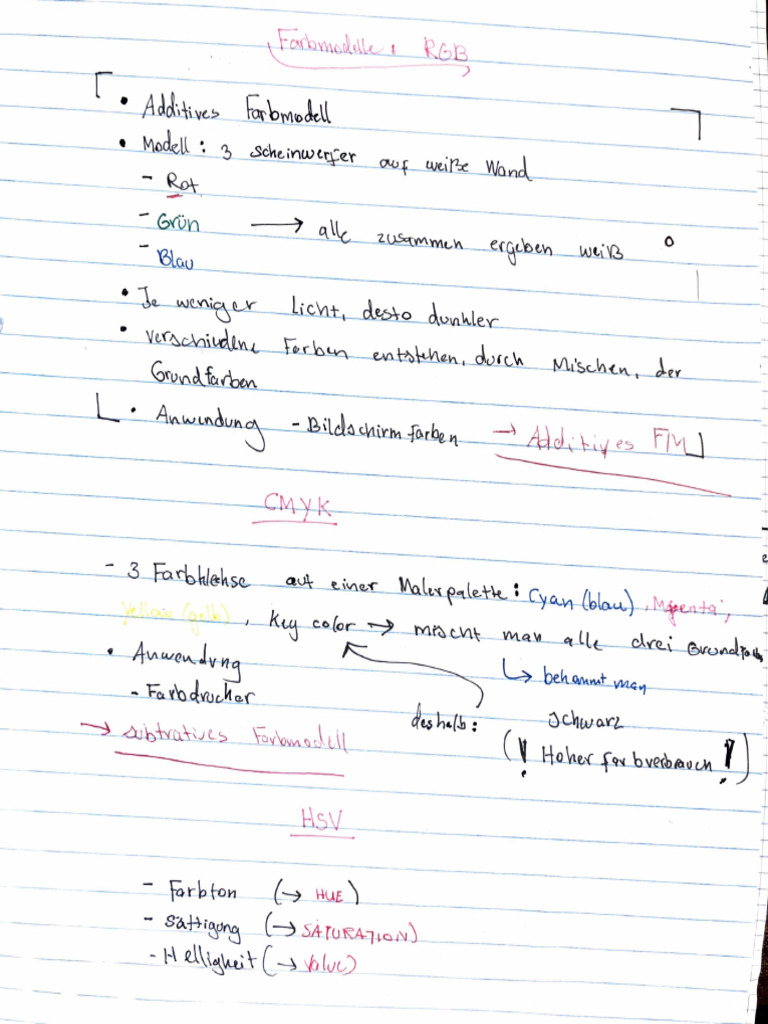 Farbmodelle: RGB
• Additives Farbmodell
• Modell: 3 Scheinwerfer auf weiße Wand
- Rot
- Grün → alle zusammen ergeben weiß
- Blau
• Je weniger Licht, desto dunkler
• verschiedene Farben entstehen, durch Mischen, der
Grundfarben
• Anwendung - Bildschirmfarben → Additives F/M
CMYK
- 3 Farbkleckse auf einer Malerpalette: Cyan (blau), Magenta,
Yellow (gelb), Key color → mischt man alle drei Grundfarben
• Anwendung ↳ bekommt man
- Farbdrucker deshalb: schwarz
→ subtratives Farbmodell (! Hoher farbverbrauch !)
HSV
- Farbton (→ HUE)
- Sättigung (→ SATURATION)
- Helligkeit (→ Value)